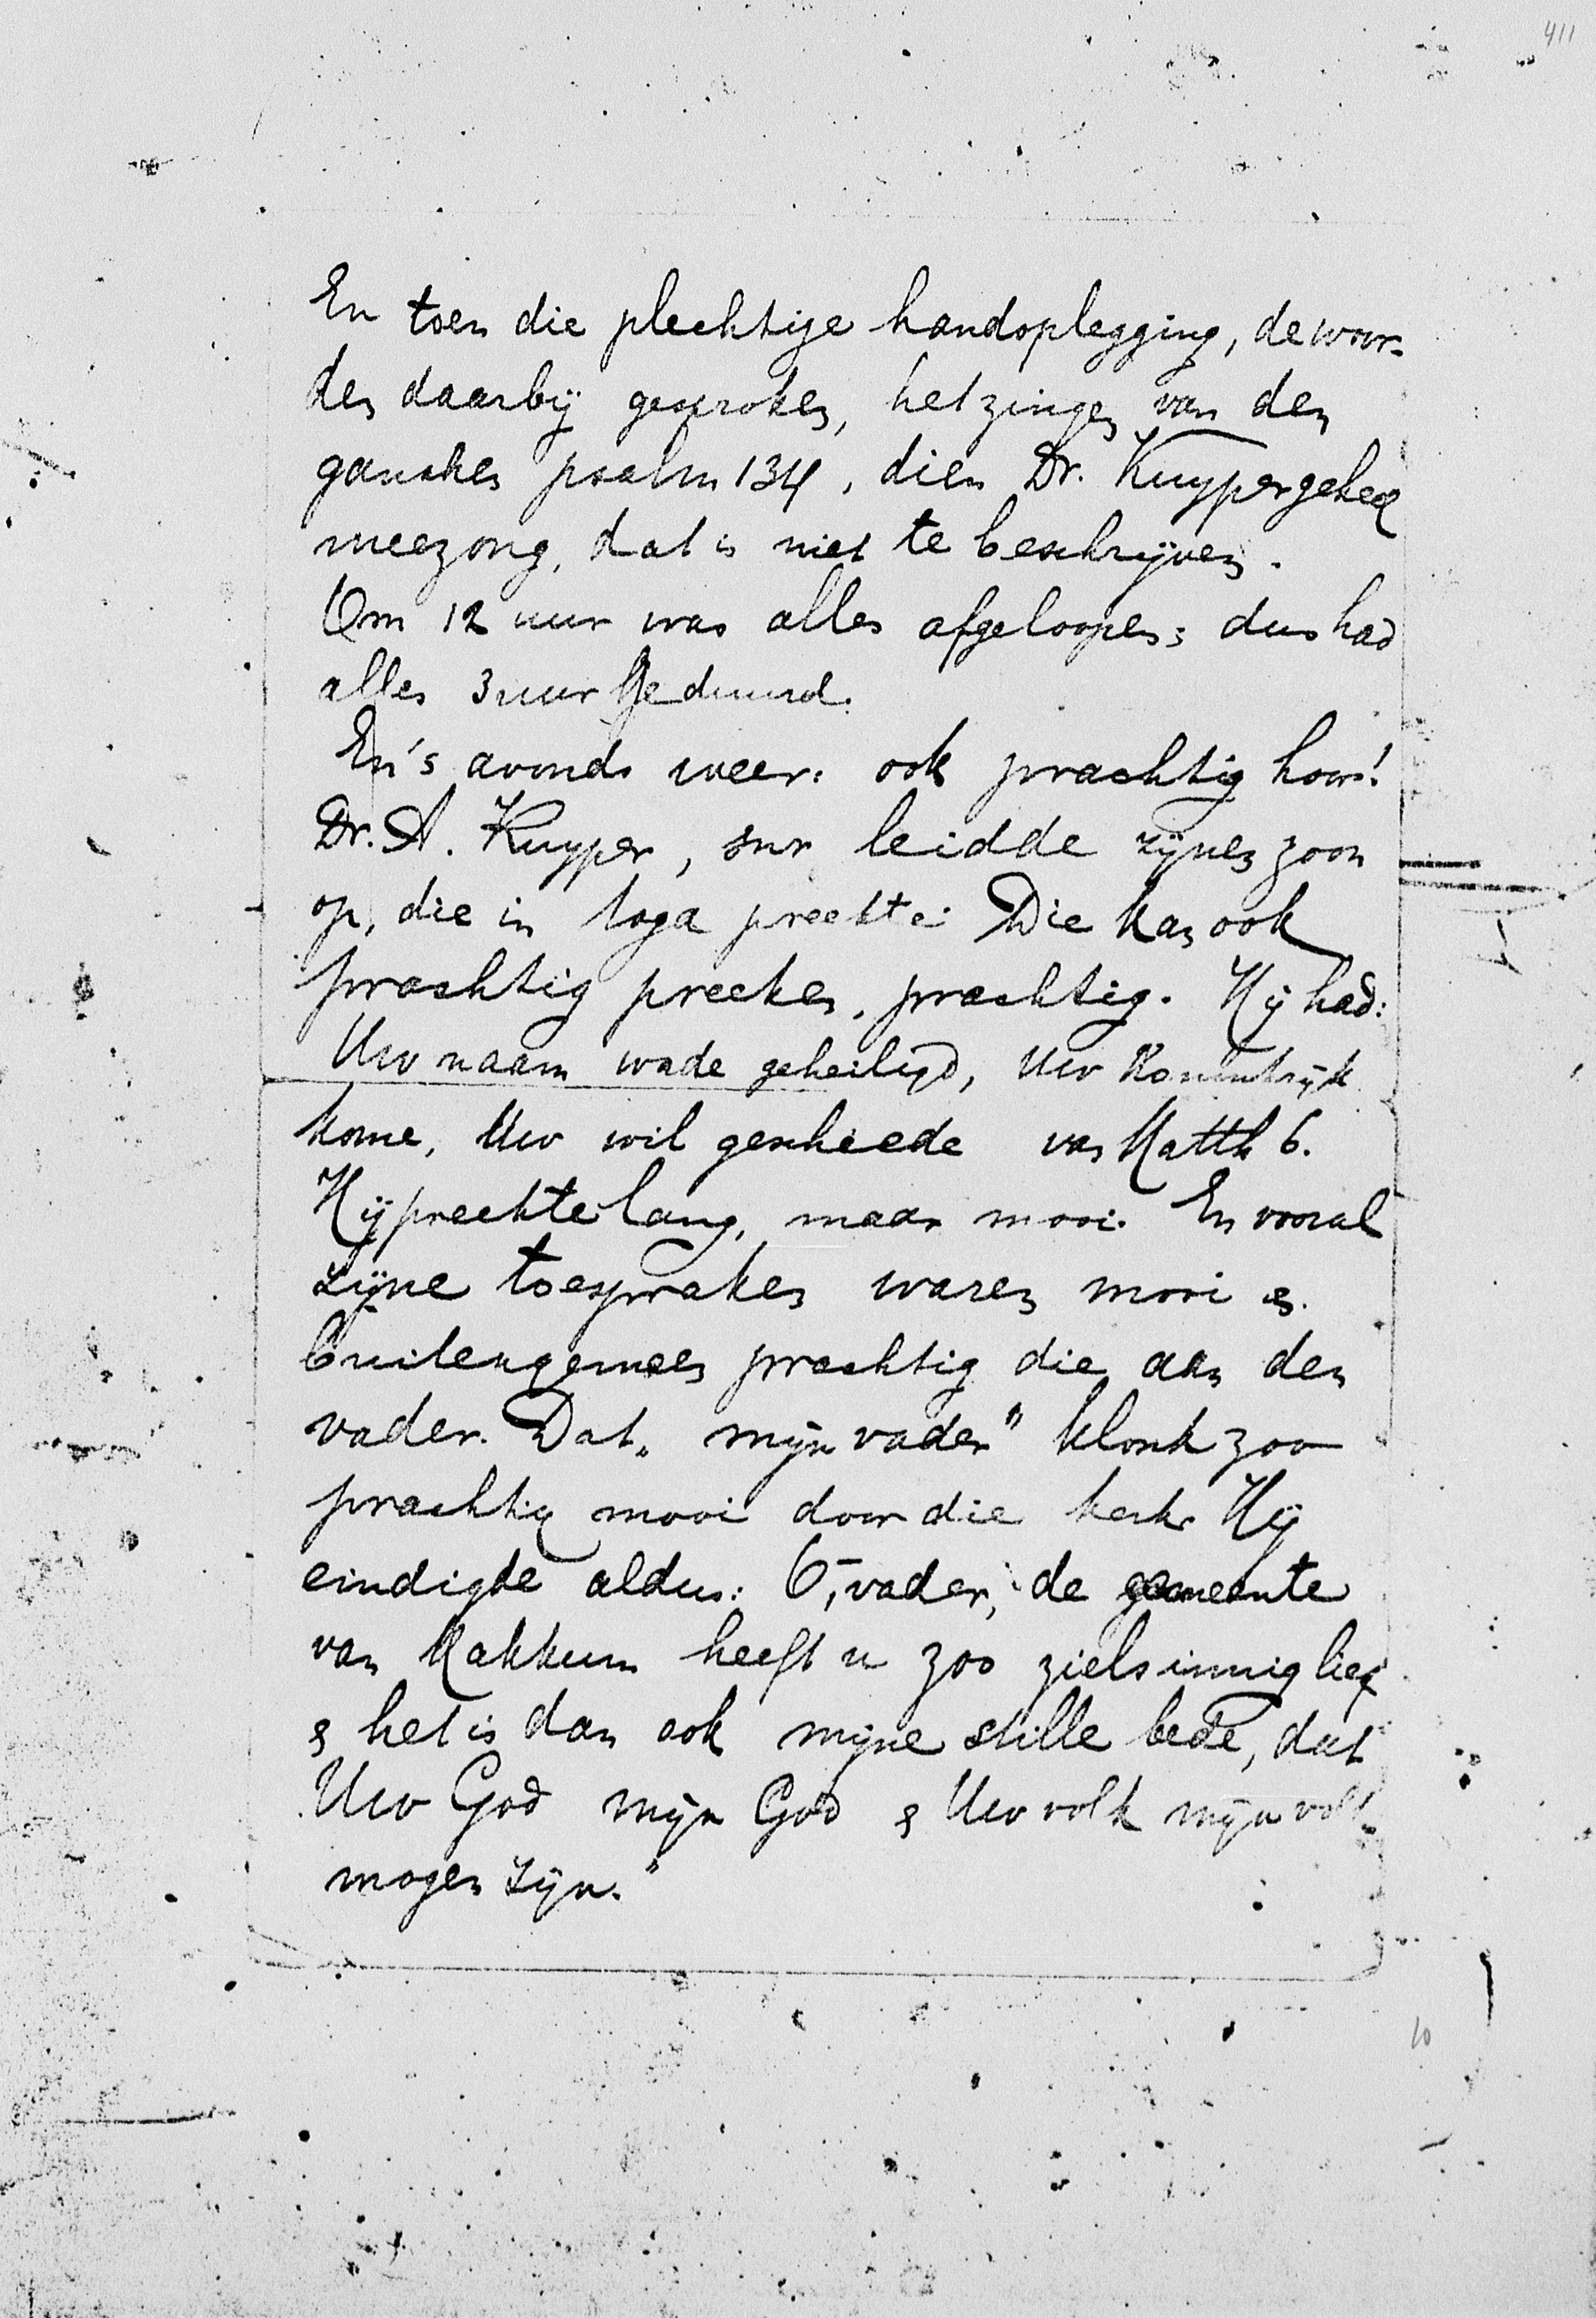 411
En toen die plechtige handoplegging, de woor-
den daarbij gesproken, het zingen van den
ganschen psalm 134, dien Dr. Kuyper geheel
meezong, dat is niet te beschrijven.
Om 12 uur was alles afgeloopen; dus had
alles 3 uur geduurd.
En 's avonds weer: ook prachtig hoor!
Dr. A. Kuyper, snr leidde zijnen zoon
op, die in toga preekte. Die kan ook
prachtig preeken, prachtig. Hij had:
Uw naam worde geheiligd, Uw Koninkrijk
kome, Uw wil geschiede van Matth 6.
Hij preekte lang, maar mooi. En vooral
zijne toespraken waren mooi en
buitengemeen prachtig die aan den
vader. Dat „mijn vader" klonk zoo
prachtig mooi door die kerk. Hij
eindigde aldus: O, vader, de gemeente
van Makkum heeft u zoo zielsinnig lief
& het is dan ook mijne stille bede, dat
Uw God mijn God & Uw volk mijn volk
mogen zijn."
10